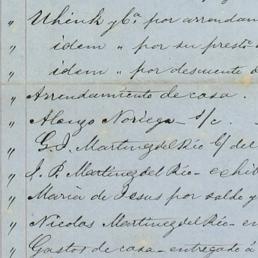 " Uhink y Cª por arrendam
" idem " por su prestº
" idem " por descuento d
" Arrendamiento de casa.
" Alonzo Noriega s/c.
" G. J. Martinez del Rio C/ del
" J. P. Martinez del Rio - exhib
" Maria de Jesus por saldo y
" Nicolas Martinez del Rio - en
" Gastos de casa - entregado á